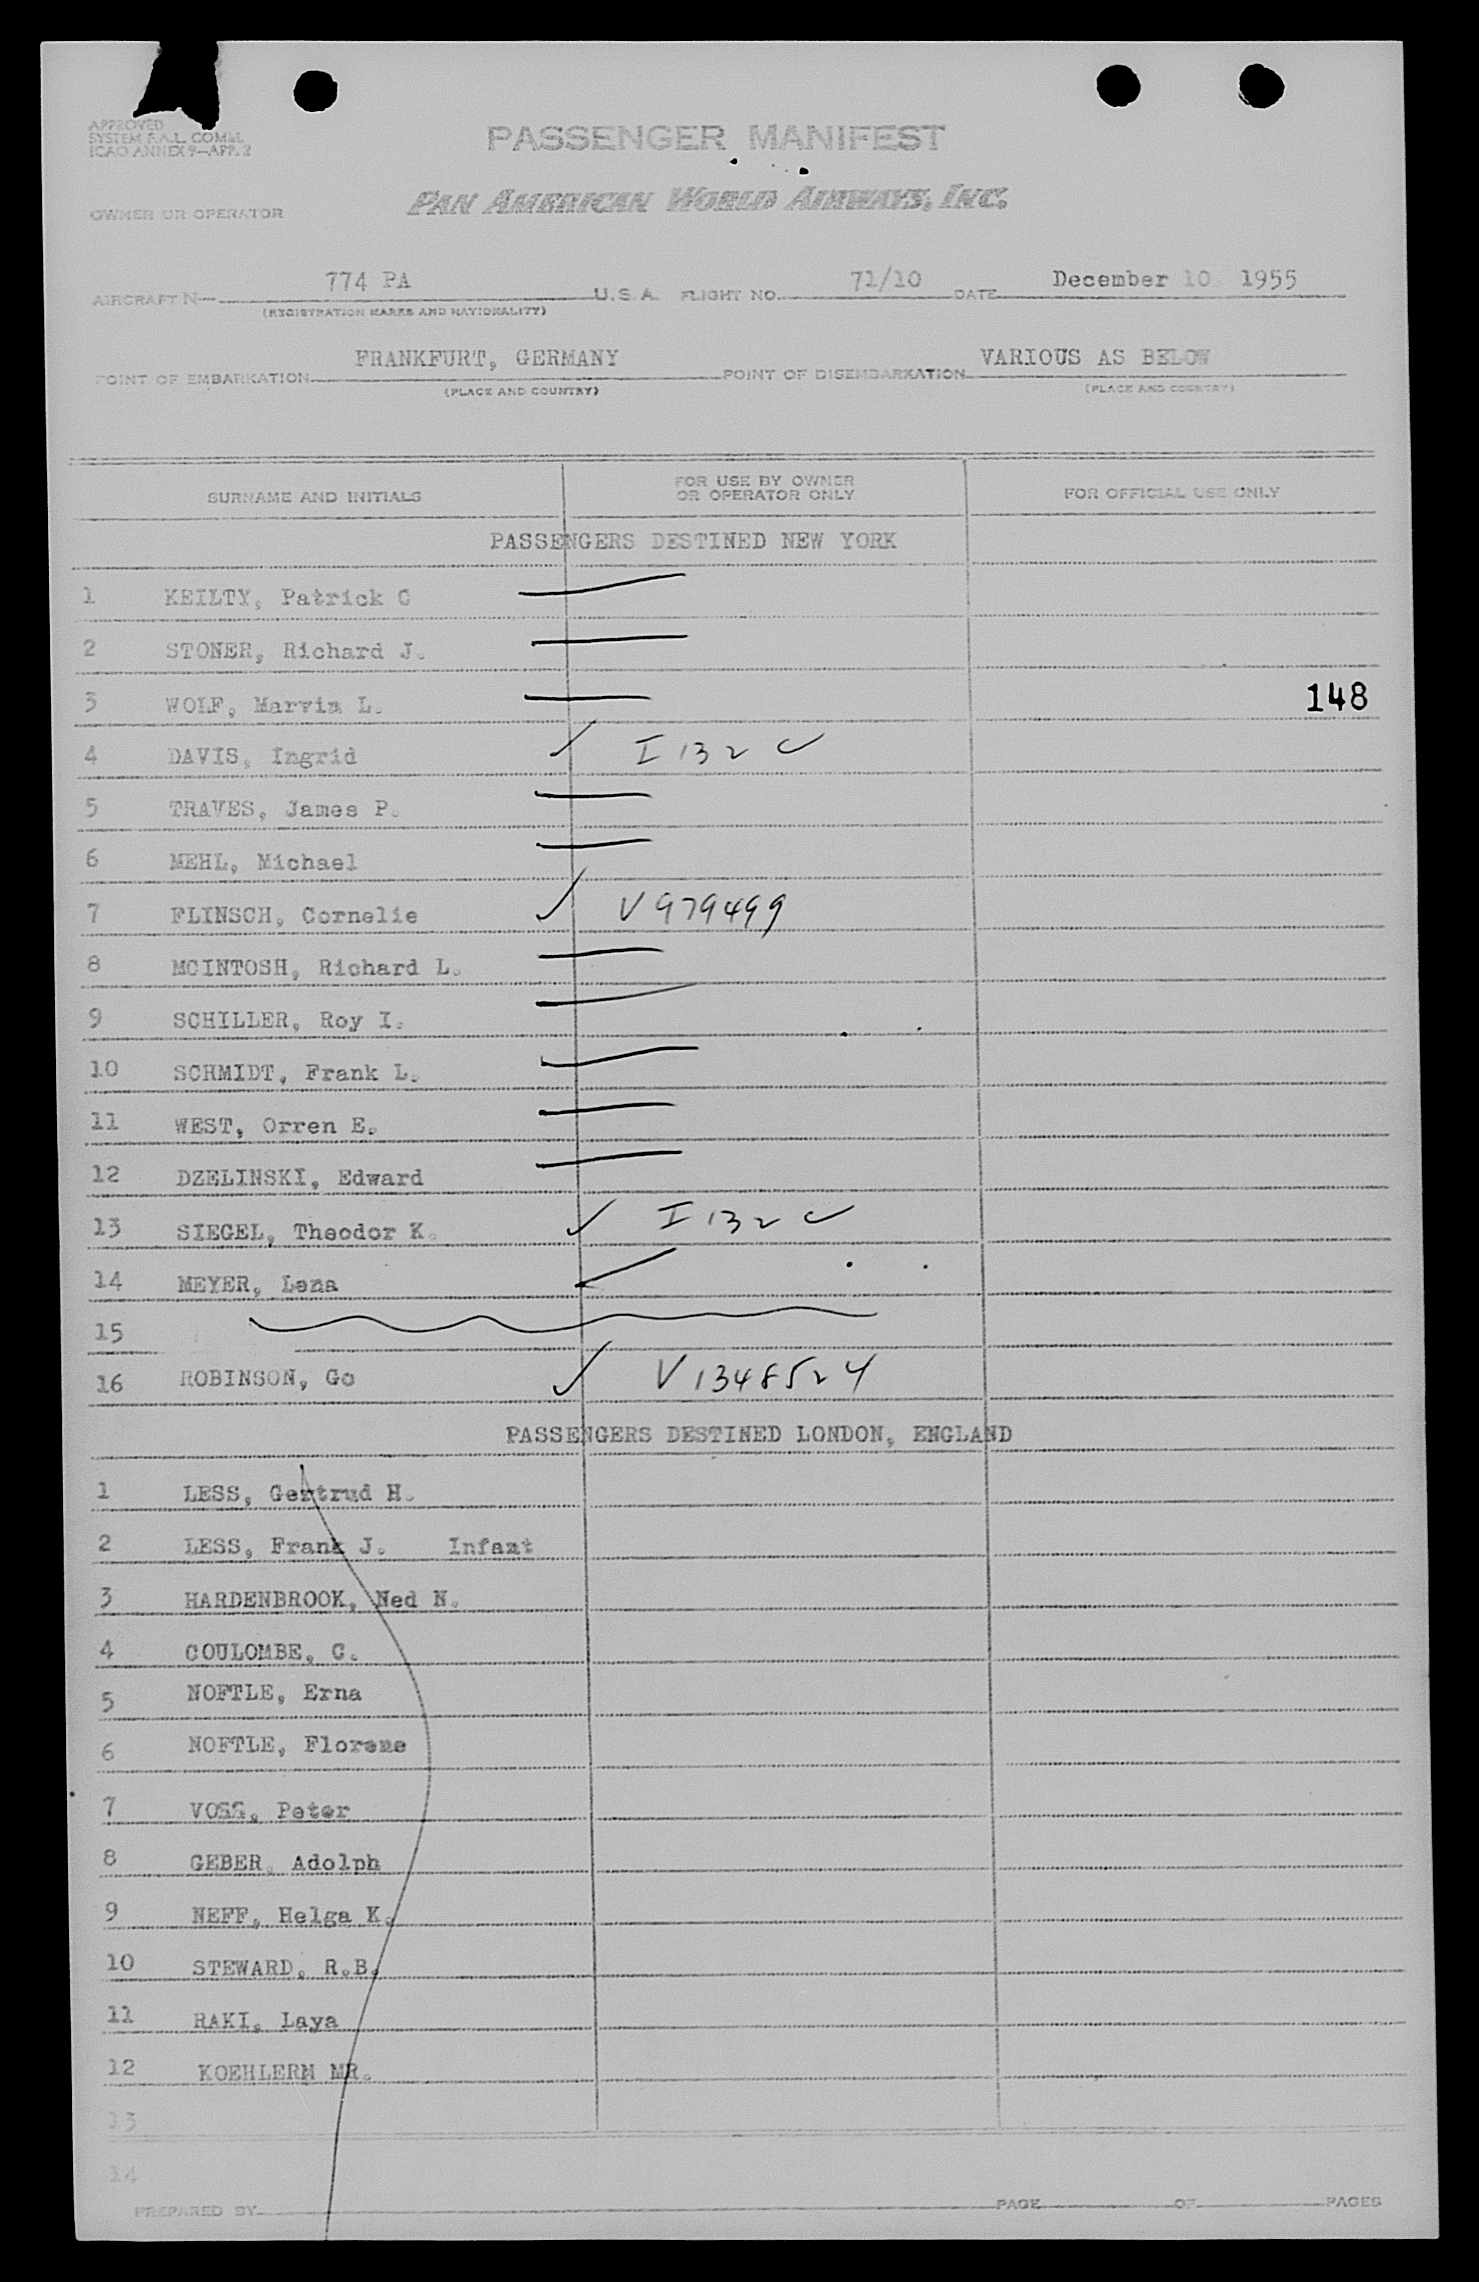 APPROVED
SYSTEM F.A.L. COMM.
ICAO ANNEX 9—APP. 2
PASSENGER MANIFEST
OWNER OR OPERATOR
PAN AMERICAN WORLD AIRWAYS, INC.
AIRCRAFT N— 774 PA U.S.A. FLIGHT NO. 71/10 DATE December 10, 1955
(REGISTRATION MARKS AND NATIONALITY)
POINT OF EMBARKATION FRANKFURT, GERMANY POINT OF DISEMBARKATION VARIOUS AS BELOW
(PLACE AND COUNTRY) (PLACE AND COUNTRY)
SURNAME AND INITIALS FOR USE BY OWNER OR OPERATOR ONLY FOR OFFICIAL USE ONLY
PASSENGERS DESTINED NEW YORK
1 KEILTY, Patrick C
2 STONER, Richard J.
3 WOLF, Marvin L. 148
4 DAVIS, Ingrid ✓ I 132 ✓
5 TRAVES, James P.
6 MEHL, Michael
7 FLINSCH, Cornelie ✓ V979499
8 MCINTOSH, Richard L.
9 SCHILLER, Roy I.
10 SCHMIDT, Frank L.
11 WEST, Orren E.
12 DZELINSKI, Edward
13 SIEGEL, Theodor K. ✓ I 132 ✓
14 MEYER, Lena
15
16 ROBINSON, Go ✓ V1348524
PASSENGERS DESTINED LONDON, ENGLAND
1 LESS, Gertrud H.
2 LESS, Frank J. Infant
3 HARDENBROOK, Ned N.
4 COULOMBE, C.
5 NOFTLE, Erna
6 NOFTLE, Florene
7 VOSS, Peter
8 GEBER, Adolph
9 NEFF, Helga K.
10 STEWARD, R.B.
11 RAKI, Laya
12 KOEHLERN MR.
13
14
PREPARED BY PAGE OF PAGES